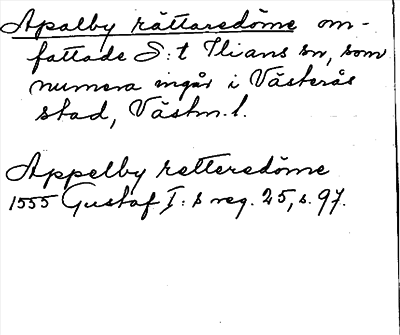 Apalby rättaredöme om-
fattade S:t Ilians sn, som
numera ingår i Västerås
stad, Västm.l.
Appelby retteredöme
1555 Gustaf I:s reg. 25, s. 97.